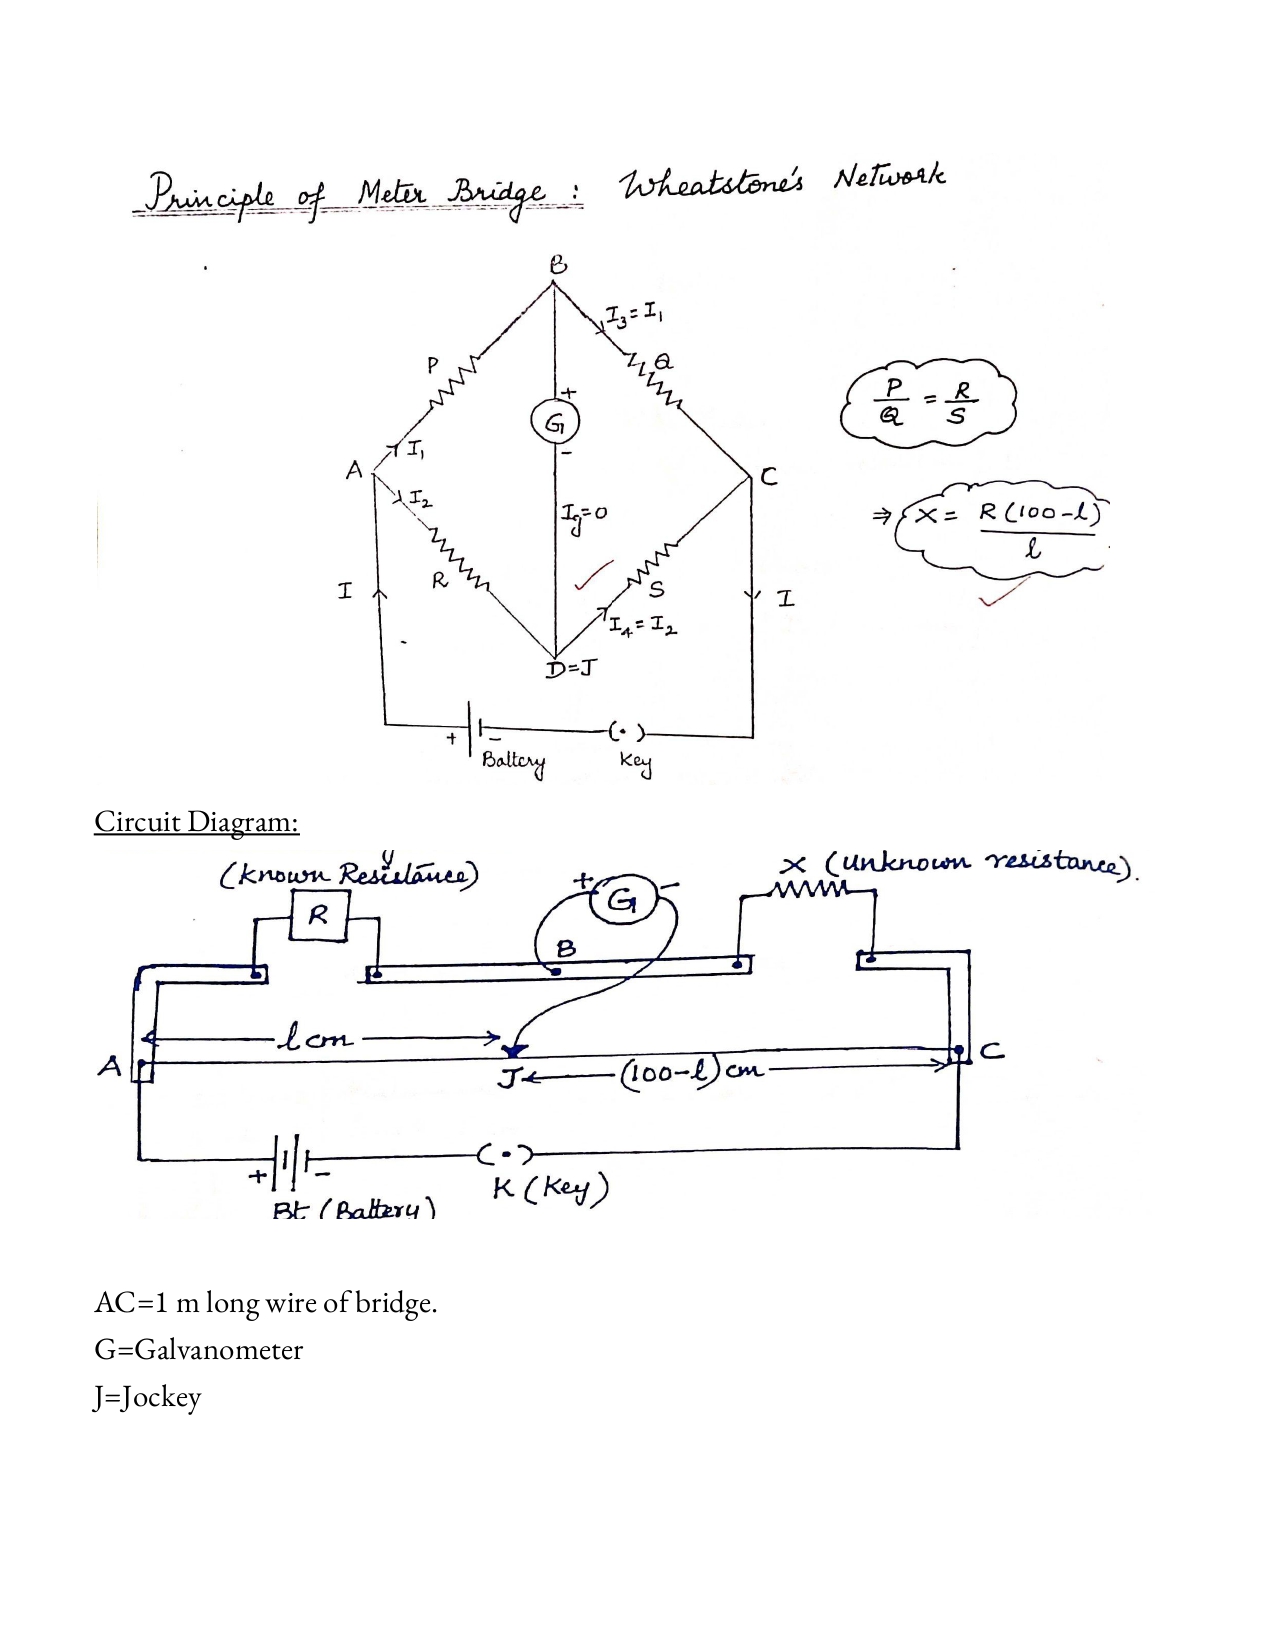 Principle of Meter Bridge : Wheatstone's Network
B
I₃=I₁
P
Q
+
G
-
P/Q = R/S
A
I₁
C
I₂
Ig=0
⇒ X = R(100-l)/l
R
S
I
I
I₄=I₂
D=J
+
-
Battery
(·)
Key
Circuit Diagram:
y
(Known Resistance)
R
+
G
-
X (Unknown resistance).
B
l cm
A
J
(100-l) cm
C
+
-
(·)
K (Key)
Bt (Battery)
AC=1 m long wire of bridge.
G=Galvanometer
J=Jockey